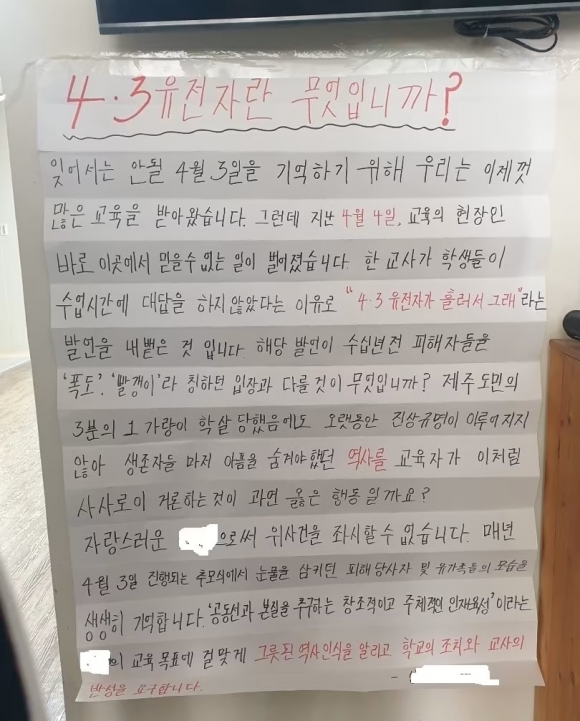 4·3 유전자란 무엇입니까?
잊어서는 안될 4월 3일을 기억하기 위해 우리는 이제껏
많은 교육을 받아왔습니다. 그런데 지난 4월 4일, 교육의 현장인
바로 이곳에서 믿을 수 없는 일이 벌어졌습니다. 한 교사가 학생들이
수업시간에 대답을 하지 않았다는 이유로 "4·3 유전자가 흘러서 그래"라는
발언을 내뱉은 것 입니다. 해당 발언이 수십년전 피해자들을
'폭도', '빨갱이'라 칭하던 입장과 다를것이 무엇입니까? 제주도민의
3분의 1 가량이 학살 당했음에도 오랫동안 진상규명이 이루어지지
않아 생존자들 마저 아픔을 숨겨야했던 역사를 교육자가 이처럼
사사로이 거론하는것이 과연 옳은 행동일까요?
자랑스러운 으로써 위사건을 좌시할 수 없습니다. 매년
4월 3일 진행되는 추모식에서 눈물을 삼키던 피해당사자 및 유가족들의 모습을
생생히 기억합니다. '공동선과 본실을 추구하는 창조적이고 주체적인 인재육성'이라는
의 교육 목표에 걸맞게 그릇된 역사인식을 알리고 학교의 조치와 교사의
반성을 요구합니다. -